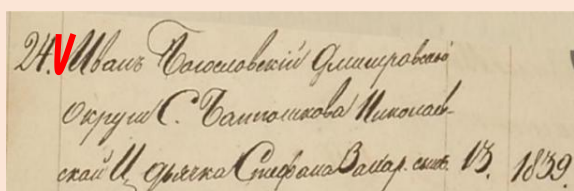 24. Иванъ Богословскій Дмитровской
округи С. Николаев-
ской Ц. дьячка Стефана Захар. сынъ. 13. 1839.